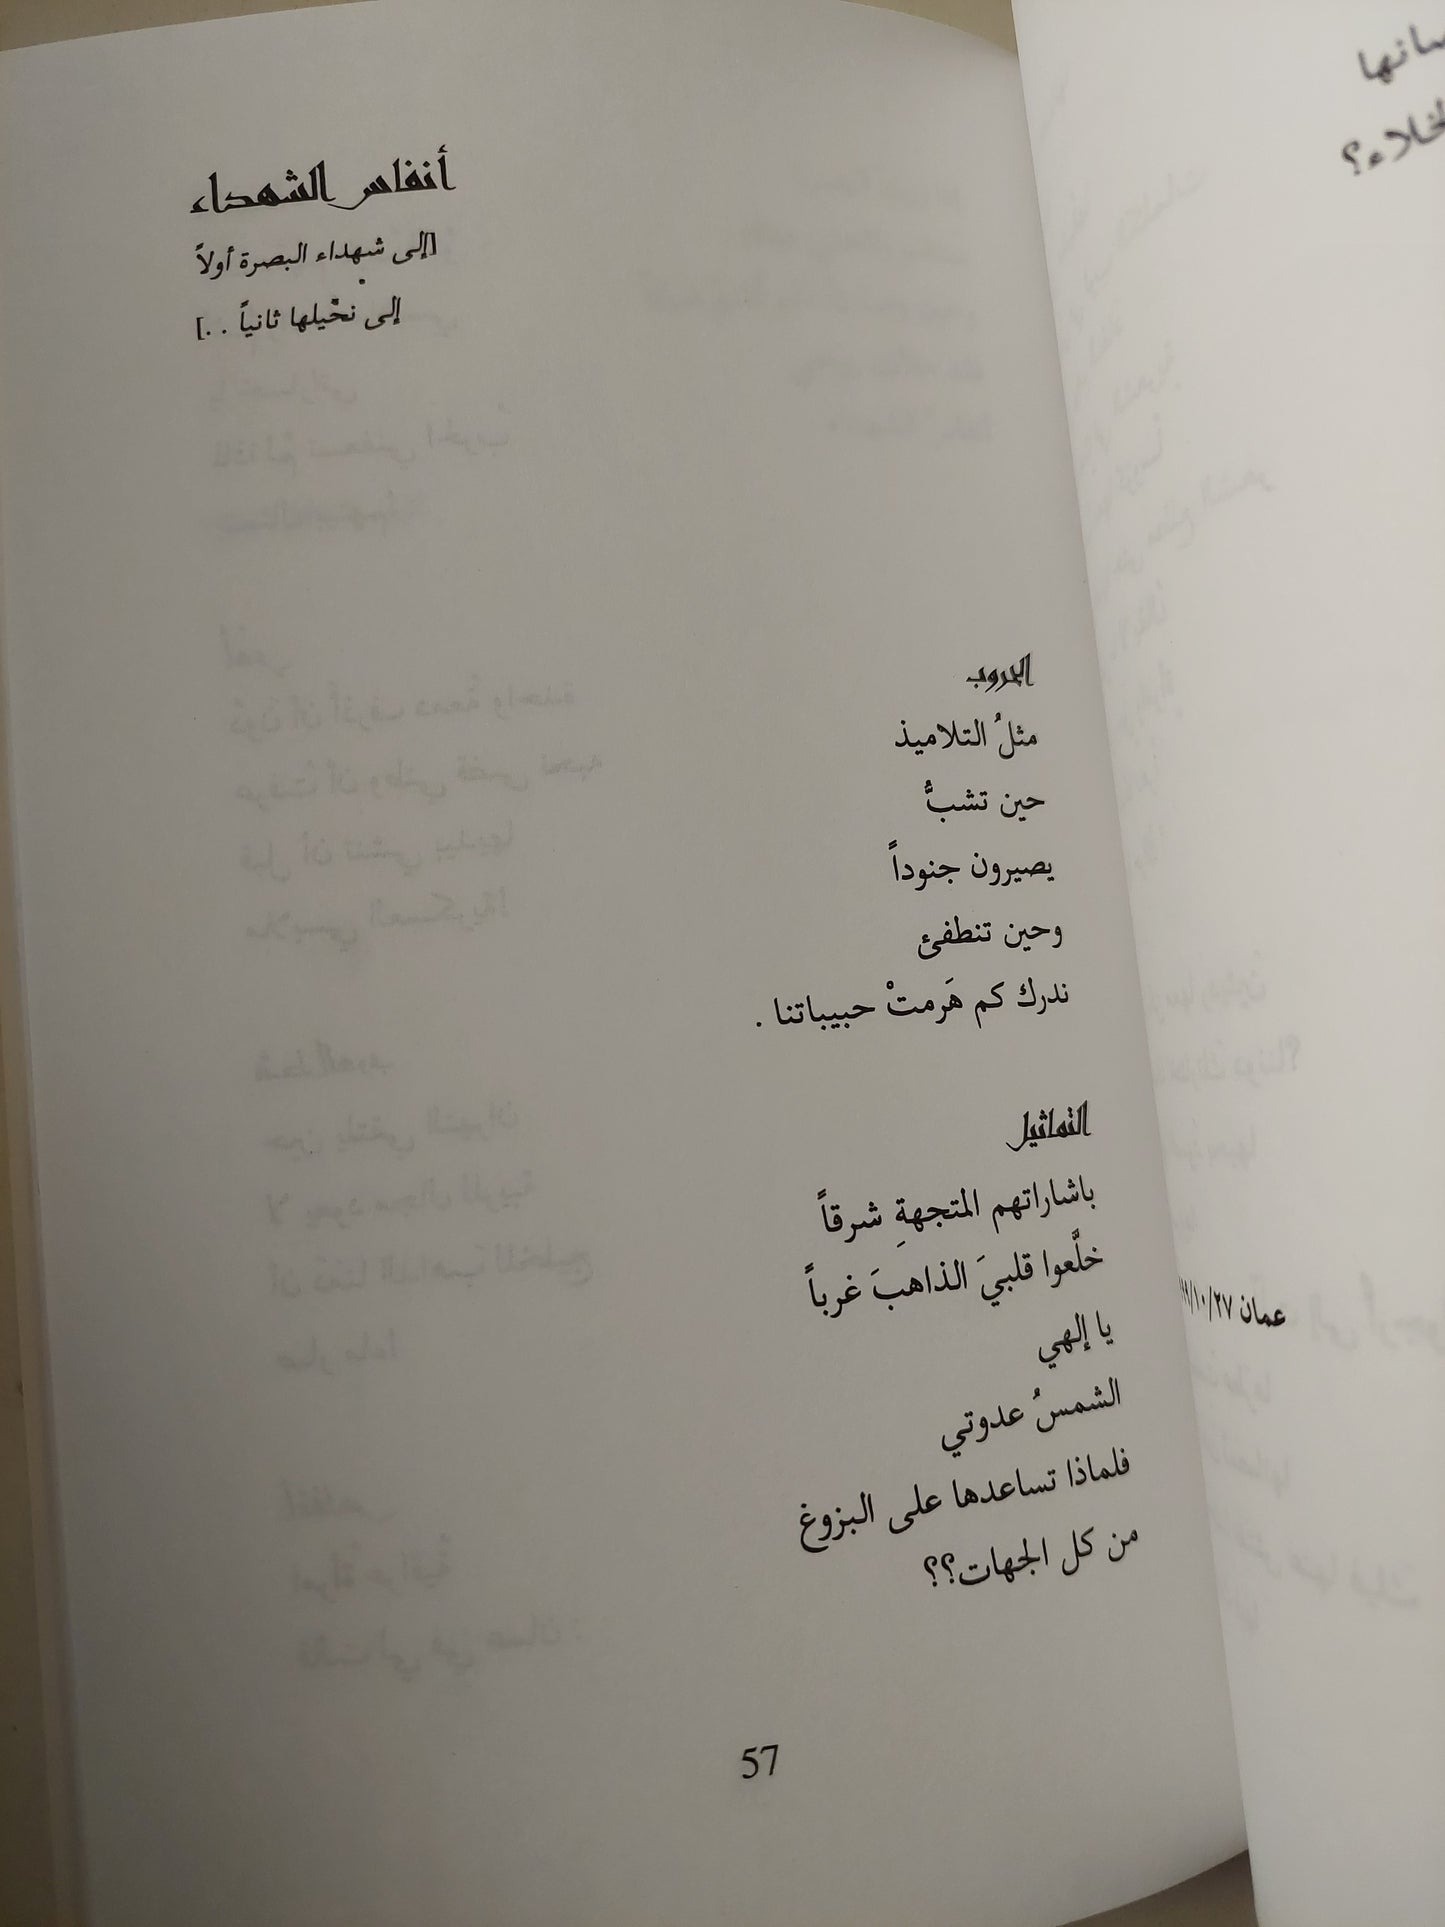 أنفاس الشهداء
[إلى شهداء البصرة أولاً
إلى نخيلها ثانياً . .]
الحروب
مثلُ التلاميذ
حين تشبُّ
يصيرون جنوداً
وحين تنطفئ
ندرك كم هَرمتْ حبيباتنا .
التماثيل
باشاراتهم المتجهةِ شرقاً
خلَّعوا قلبيَ الذاهبَ غرباً
يا إلهي
الشمسُ عدوتي
فلماذا تساعدها على البزوغ
من كل الجهات؟؟
57
عمان